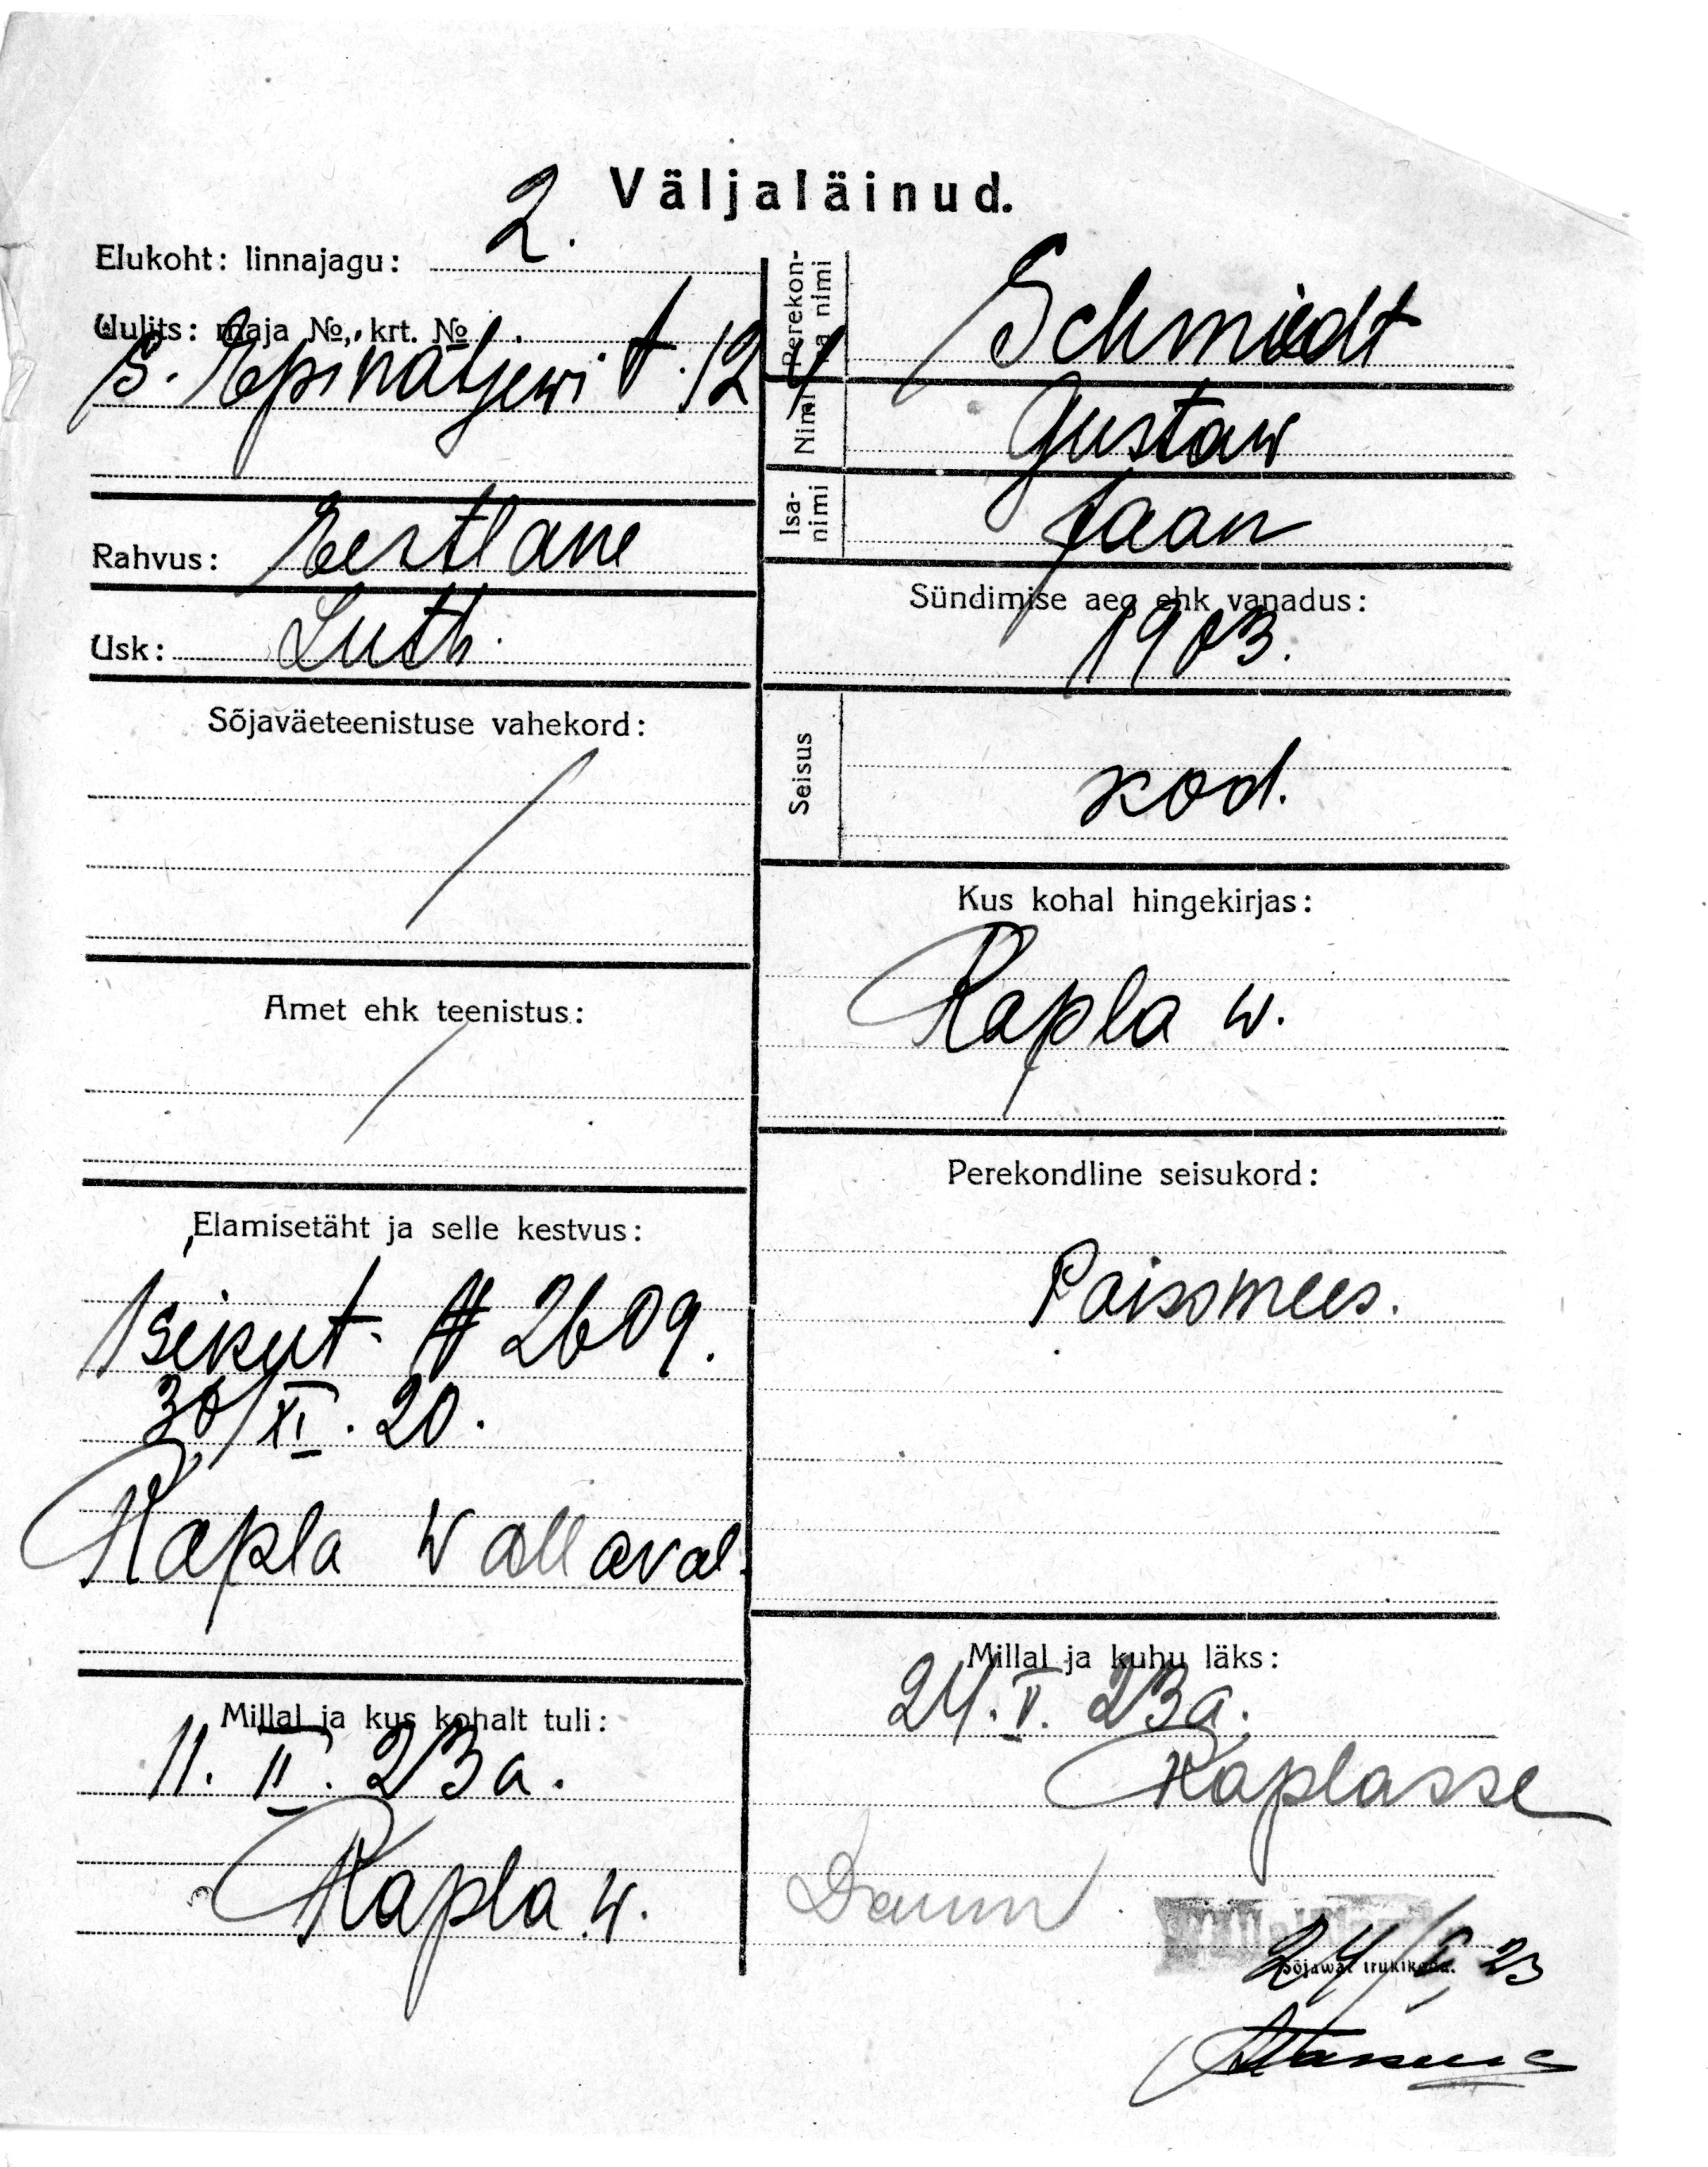 Väljaläinud.
Elukoht: linnajagu: 2.
Uulits: maja No., krt. No
S. Epinatjewi t. 12 4
Rahvus: Eestlane
Usk: Luth.
Sõjaväeteenistuse vahekord:
/
Amet ehk teenistus:
/
Elamisetäht ja selle kestvus:
Isikut. # 2609.
30/XI. 20.
Rapla wallaval.
Millal ja kus kohalt tuli:
11. II. 23 a.
Rapla w.
Perekonna nimi Schmiedt
Nimi Gustaw
Isanimi Jaan
Sündimise aeg ehk vanadus:
1903.
Seisus
kod.
Kus kohal hingekirjas:
Rapla w.
Perekondline seisukord:
Poissmees.
Millal ja kuhu läks:
24. V. 23 a.
Raplasse
24/V 23
Sõjawäe trükikoda.